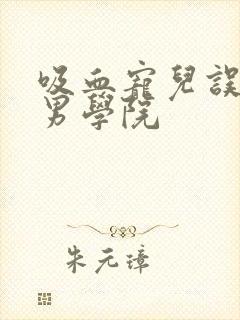 吸血寵兒誤
男學院
朱元璋